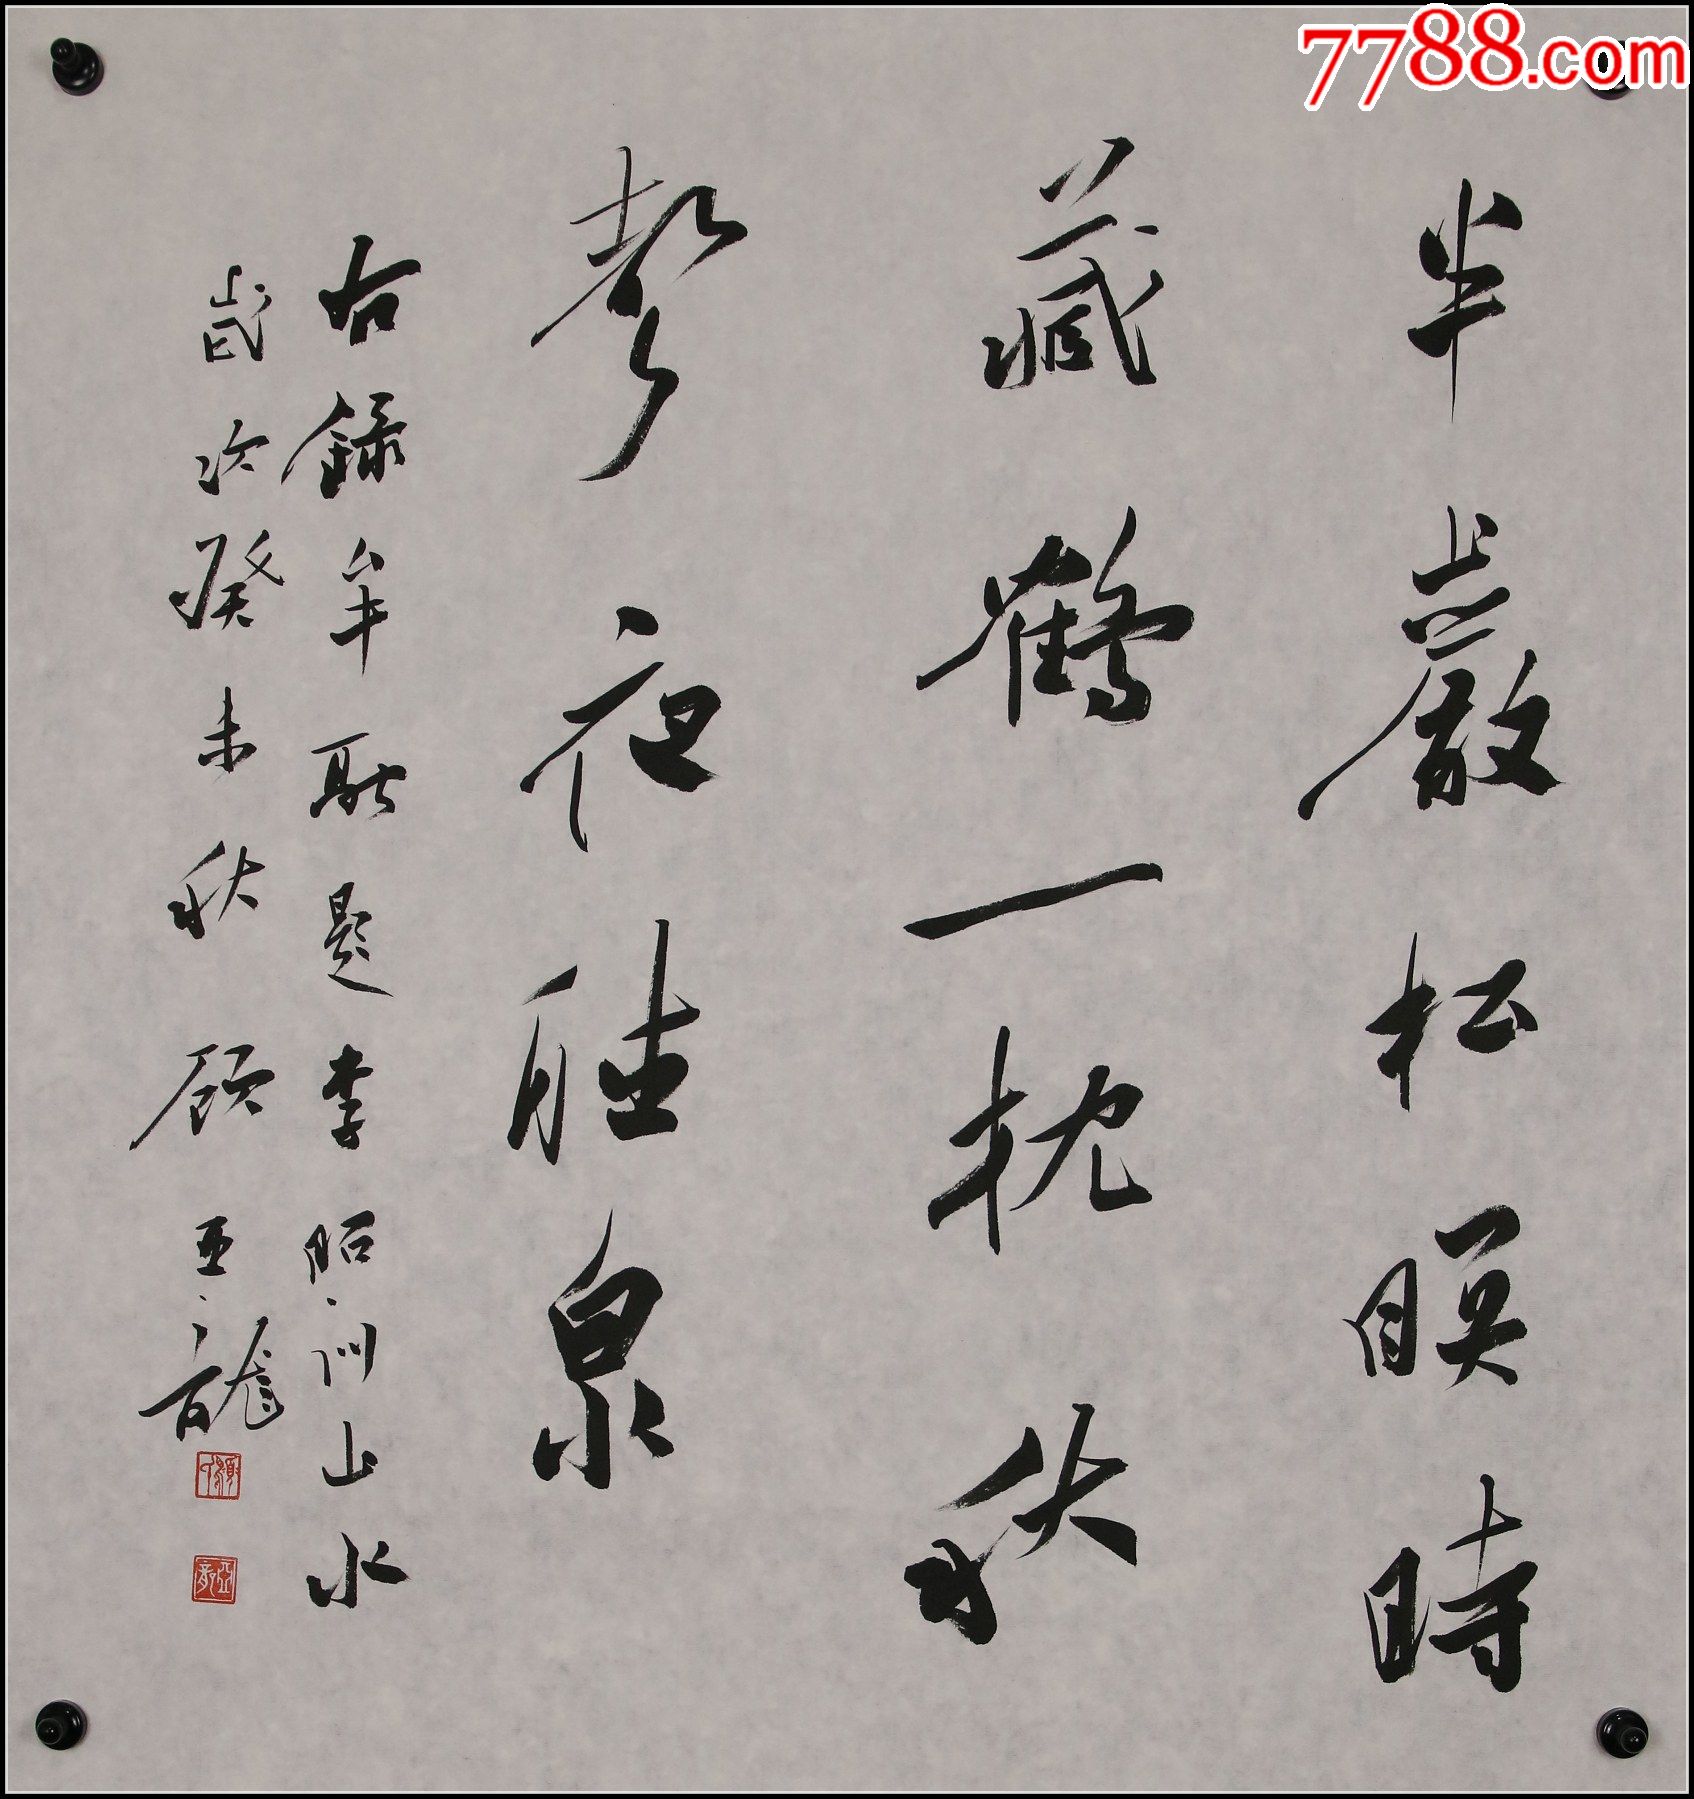 7788.com
半巖松暝時
藏鶴一枕秋
聲夜聽泉
右錄牟融題李昭訓山水
歲次癸未秋顧亞龍
亞龍